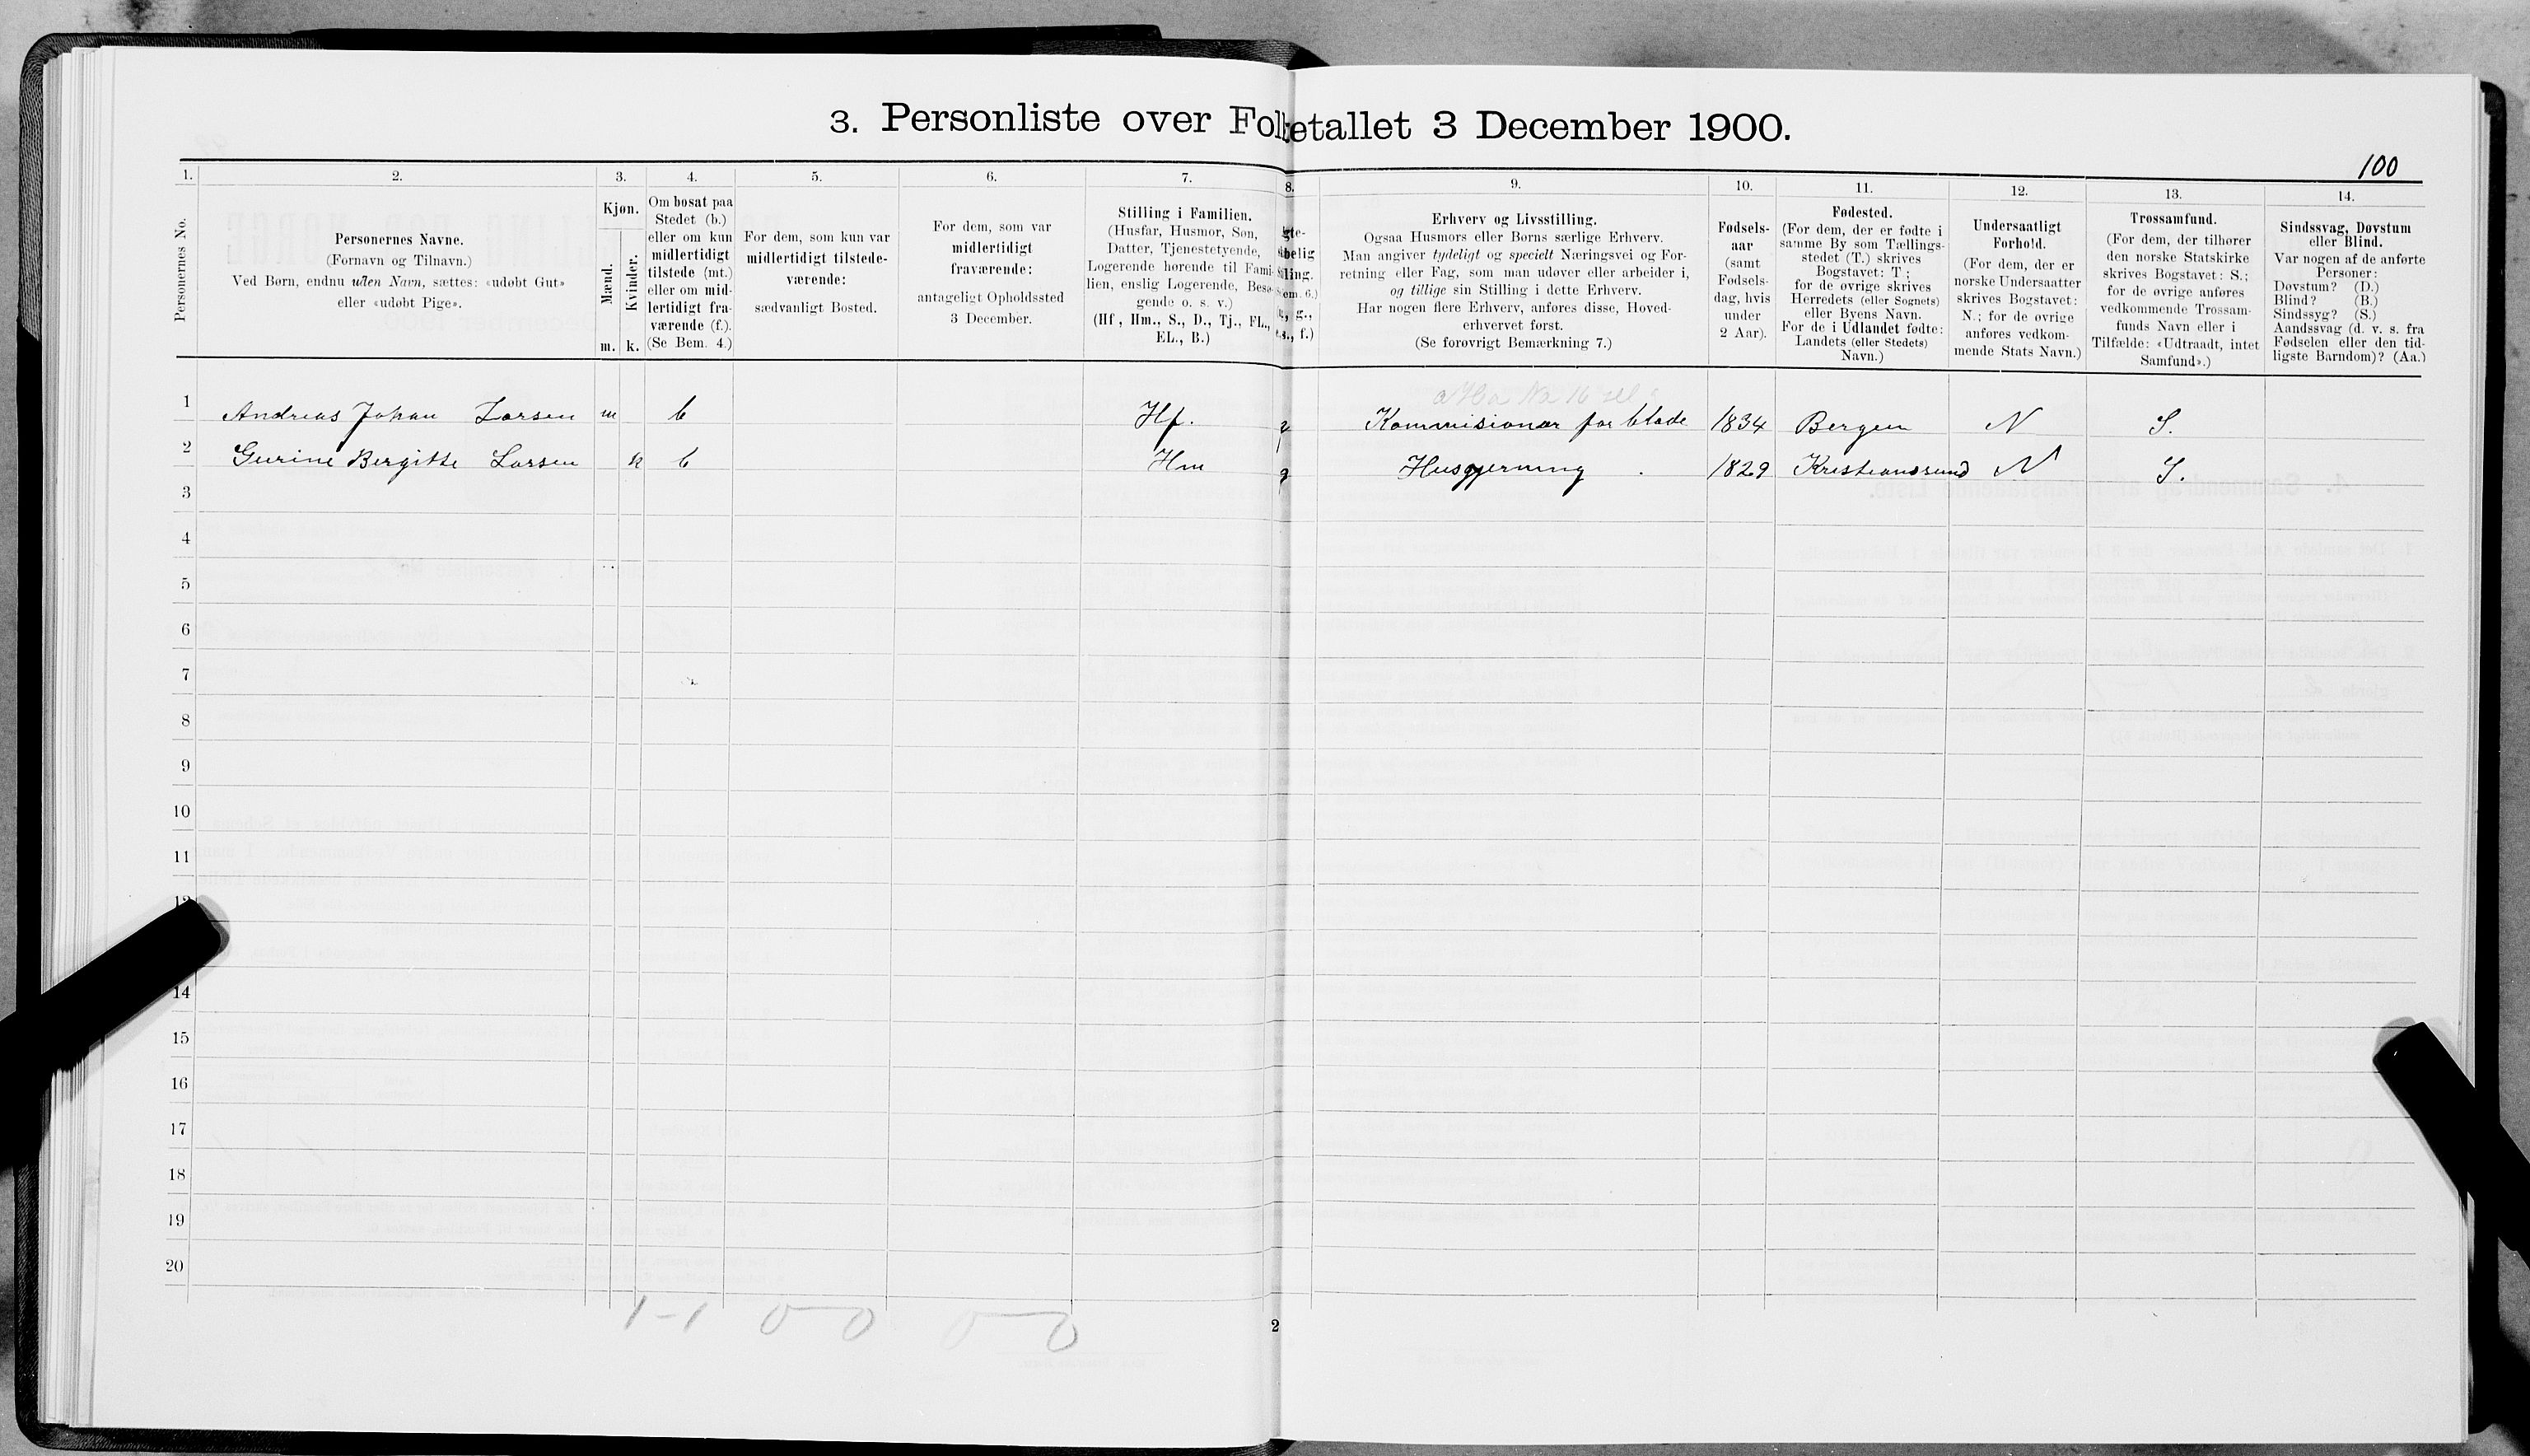 3. Personliste over Folketallet 3 December 1900.
100
1.
2.
3.
4.
5.
6.
7.
8.
9.
10.
11.
12.
13.
14.
Personernes No.
Personernes Navne.
(Fornavn og Tilnavn.)
Ved Børn, endnu uden Navn, sættes: «udøbt Gut»
eller «udøbt Pige».
Kjøn.
Mænd.
Kvinder.
m. k.
Om bosat paa
Stedet (b.)
eller om kun
midlertidigt
tilstede (mt.)
eller om mid-
lertidigt fra-
værende (f.).
(Se Bem. 4.)
For dem, som kun var
midlertidigt tilstede-
værende:
sædvanligt Bosted.
For dem, som var
midlertidigt
fraværende:
antageligt Opholdssted
3 December.
Stilling i Familien.
(Husfar, Husmor, Søn,
Datter, Tjenestetyende,
Logerende hørende til Fami-
lien, enslig Logerende, Besø-
gende o. s. v.)
(Hf, Hm., S., D., Tj., FL.,
EL., B.)
gte-
belig
ling.
em. 6.)
g.,
s., f.)
Erhverv og Livsstilling.
Ogsaa Husmors eller Børns særlige Erhverv.
Man angiver tydeligt og specielt Næringsvei og For-
retning eller Fag, som man udøver eller arbeider i,
og tillige sin Stilling i dette Erhverv.
Har nogen flere Erhverv, anføres disse, Hoved-
erhvervet først.
(Se forøvrigt Bemærkning 7.)
Fødsels-
aar
(samt
Fødsels-
dag, hvis
under
2 Aar).
Fødested.
(For dem, der er fødte i
samme By som Tællings-
stedet (T.) skrives
Bogstavet: T;
for de øvrige skrives
Herredets (eller Sognets)
eller Byens Navn.
For de i Udlandet fødte:
Landets (eller Stedets)
Navn.)
Undersaatligt
Forhold.
(For dem, der er
norske Undersaatter
skrives Bogstavet:
N.; for de øvrige
anføres vedkom-
mende Stats Navn.)
Trossamfund.
(For dem, der tilhører
den norske Statskirke
skrives Bogstavet: S.;
for de øvrige anføres
vedkommende Trossam-
funds Navn eller i
Tilfælde: «Udtraadt, intet
Samfund».)
Sindssvag, Døvstum
eller Blind.
Var nogen af de anførte
Personer:
Døvstum? (D.)
Blind? (B.)
Sindssyg? (S.)
Aandssvag (d. v. s. fra
Fødselen eller den tid-
ligste Barndom)? (Aa.)
1 Andreas Johan Larsen m b Hf. g Kommisionær for blade 1834 Bergen N S.
2 Gurine Bergitte Larsen k b Hm g Husgjerning . 1829 Kristiansund N S.
3
4
5
6
7
8
9
10
11
12
14
15
16
17
18
19
20
1-1 0-0 0-0
2